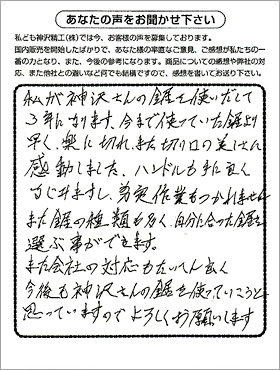 あなたの声をお聞かせ下さい
私ども神沢精工(株)では今、お客様の声を募集しております。
国内販売を開始したばかりで、あなた様の率直なご意見、ご感想が私たちの一
番の力となり、また、今後の参考になります。商品についての感想や弊社の対
応、また他社との違いなど何でも結構ですので、感想を書いてお送り下さい。
私が神沢さんの鋸を使いだして
3年になります、今まで使っていた鋸より
早く、楽に切れ、また切り口の美しさに
感動しました、ハンドルも手に良く
なじみますし、剪定作業もつかれません
また鋸の種類も多く、自分に合った鋸を
選ぶ事ができます。
また会社の対応もたいへん良く
今後も神沢さんの鋸を使っていこうと
思っていますのでよろしくお願いします